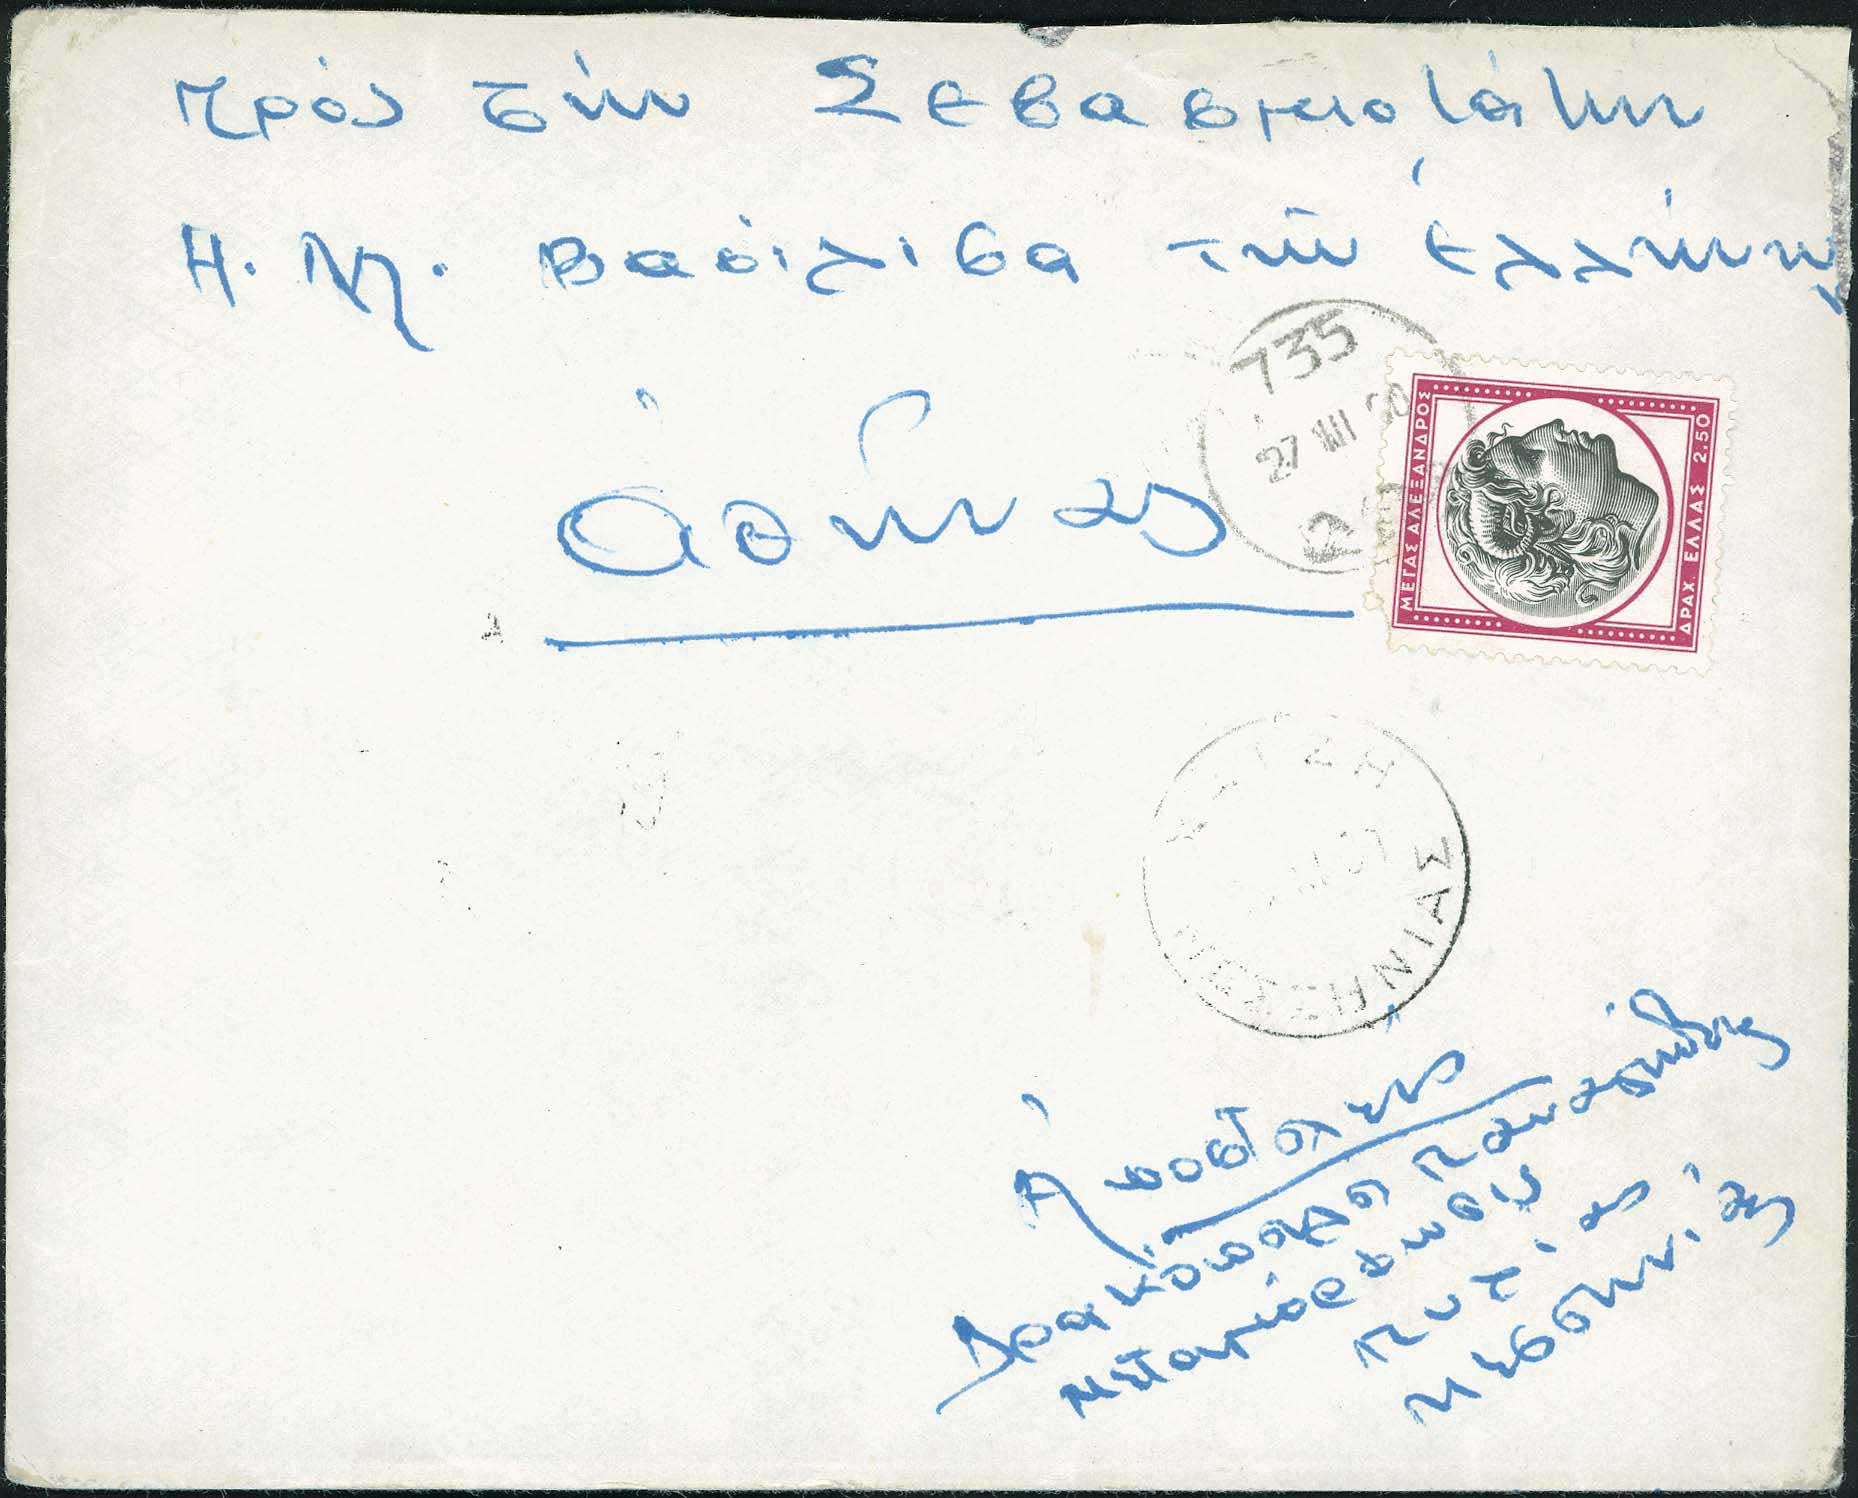 πρός τήν Σεβασμιοτάτην
Α. Μ. Βασίλισα τῶν Ἑλλήνων
Ἀθήνας
735
27 VIII 60
ΜΕΓΑΣ ΑΛΕΞΑΝΔΡΟΣ
ΔΡΑΧ. ΕΛΛΑΣ 2.50
ΜΕΣΣΗΝΙΑΣ
Ἀποστολεύς
Δρακόπουλο Παναγιώτης
Μεταμόρφωσις
Πυλίας
Μεσσηνίας